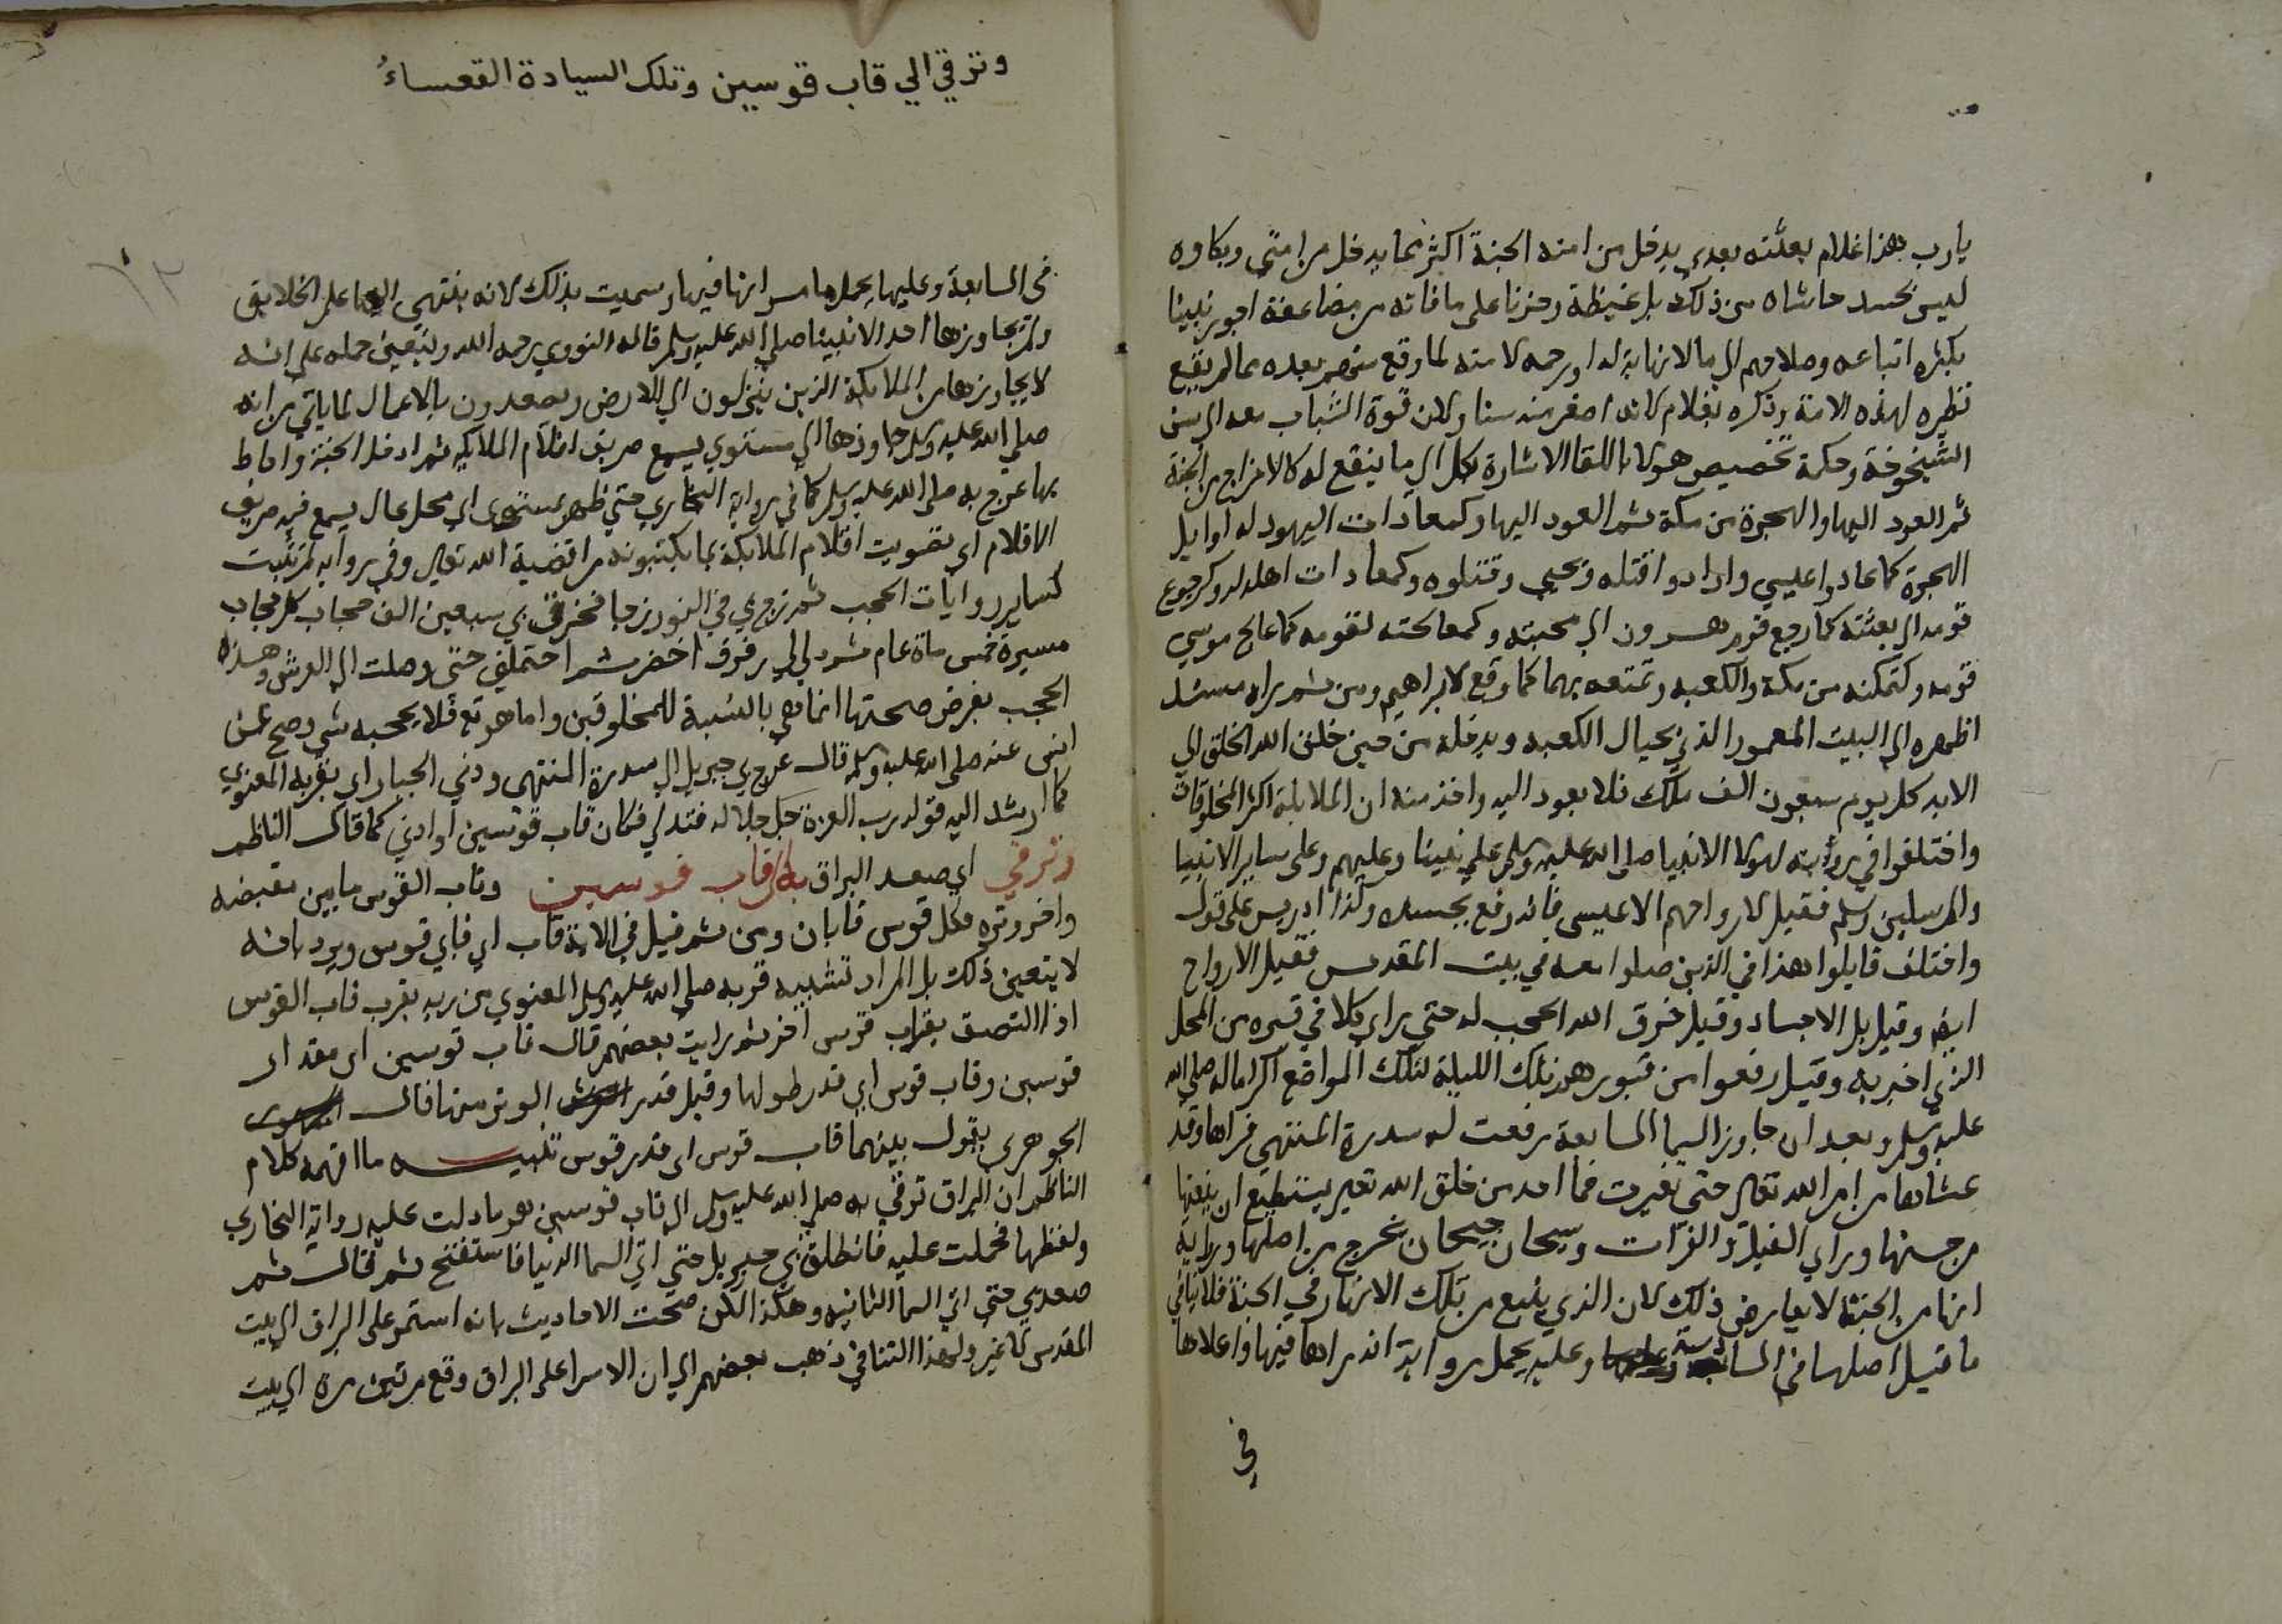 يارب هذا غلام بعثته بعدي يدخل من امته الجنة اكثر مما يدخل من امتي وبكاوه
ليس بحسد حاشاه من ذلك بل غبطة وحزنا على ما فاته من مضاعفة اجور نبينا
بكثره اتباعه وصلاحهم الي مالا نهاية له او رحمه لامته لما وقع منهم بعده مما لم يقع
نظيره لهذه الامة وذكره بغلام لانه اصغر منه سنا ولان قوة الشباب معه الي سن
الشيخوخة وحكمة تخصيص هولا باللقا الاشارة لكل الي ما ينقع له كالاخراج من الجنة
ثم العود اليها والهجرة من مكة ثم العود اليها وكمعادات اليهود له اوايل
الهجرة كما عادوا عليسي وارادوا قتله ويحيى وقتلوه وكمعادات اهله له وكرجوع
قومه الي بعثته كما رجع قوم هرون الي محبته وكمعالجته لقومه كما عالج موسي
قومه وكتمكنه من مكة والكعبه وتمتعه بهما كما وقع لابراهيم ومن ثم راه مسند
اظهره الي البيت المعمور الذي بحيال الكعبه ويدخله من حين خلق الله الخلق الي
الابد كل يوم سبعون الف ملك فلا يعود اليه واخذ منه ان الملايكة اكثر المخلوقات
واختلفوا في روأيته لهولا الانبيا صلى الله عليه وسلم علي نبينا وعليهم وعلى ساير الانبيا
والمرسلين وسلم فقيل لارواحهم الا عيسى فانه رفع بجسده وكذا ادريس على قول
واختلف قايلوا هذا في الذين صلوا معه في بيت المقدس فقيل الارواح
ايضه وقيل بل الاجساد وقيل خرق الله الحجب له حتي راي كلا في قبره من المحل
الذي اخبر به وقيل رفعوا من قبورهم تلك الليلة لتلك المواضع اكراما له صلى الله
عليه وسلم وبعد ان جاوز السما السابعة رفعت له سدرة المنتهي فراها وقد
غشاها من امر الله تعالي حتي تغيرت فما احد من خلق الله تعالي يستطيع ان ينعتها
من حسنها وراي النيل والفرات وسيحان جيحان تخرج من اصلها ورواية
انها من الجنة لا يعارض ذلك لان الذي ينبع من تلك الانهار في الجنة فلا ينافي
ما قيل اصلها في السادسة وعليه يحمل رواية انه راها فيها واعلاها
في
وترقي الي قاب قوسين وتلك السيادة القعساءُ
في السابعة وعليها يحمل ما مر انها فيها وسميت بذلك لانه ينتهي اليها علم الخلايق
ولم يجاوزها احد الا نبينا صلي الله عليه وسلم قاله النووي رحمه الله ويتعين حمله علي انه
لا يجاوزها من الملايكة الذين ينزلون الي الارض ويصعدون بالاعمال لما ياتي من انه
صلي الله عليه وسلم جاوزها الي مستوي يسمع صريف اقلام الملايكه ثم ادخل الجنة واحاط
بها عرج به صلي الله عليه وسلم كما في رواية البخاري حتي ظهر بمستوي اي محل عال يسمع فيه صريف
الاقلام اي تصويت اقلام الملايكة بما يكتبونه من اقضية الله تعالي وفي رواية لم تثبت
كساير روايات الحجب ثم زج بي في النور زجا فخرق بي سبعين الف حجاب كل حجاب
مسيرة خمس ماة عام ثم دلي لي رفرف اخضر ثم احتملني حتي وصلت الي العرش وهذه
الحجب بفرض صحتها انما هي بالنسبة للمخلوقين واما هو تع فلا يحجبه شي وصح عن
انس عنه صلي الله عليه وسلم قال عرج بي جبريل الي سدرة المنتهي ودني الجبار اي بقربه المعنوي
كما ارشد اليه قوله رب العزة جل جلاله فتدلي فكان قاب قوسين او ادني كما قال الناظم
وترقي اي صعد البراق به الي قاب قوسين وقاب القوس ما بين مقبضه
واخر وتره فلكل قوس قابان ومن ثم قيل في الاية قاب اي قابي قوس ويرد بانه
لا يتعين ذلك بل المراد تشبيه قربه صلي الله عليه وسلم المعنوي من ربه بقرب قاب القوس
اذا التصق بقراب قوس اخر ثم رايت بعضهم قال قاب قوسين اي مقدار
قوسين وقاب قوس اي قدر طولها وقيل قدر الوتر منها قال
الجوهري يقول بينهما قاب قوس اي قدر قوس تنبيه ما افهمه كلام
الناظم ان البراق ترقي به صلي الله عليه وسلم الي قاب قوسين هو ما دلت عليه رواية البخاري
ولفظها فحملت عليه فانطلق بي جبريل حتي اتي السما الدنيا فاستفتح ثم قال ثم
صعد بي حتي اتي السما الثانيه وهكذا لكن صحت الاحاديث بانه استمر على البراق الي بيت
المقدس لا غير ولهذا التنافي ذهب بعضهم الي ان الاسرا على البراق وقع مرتين مرة الي بيت